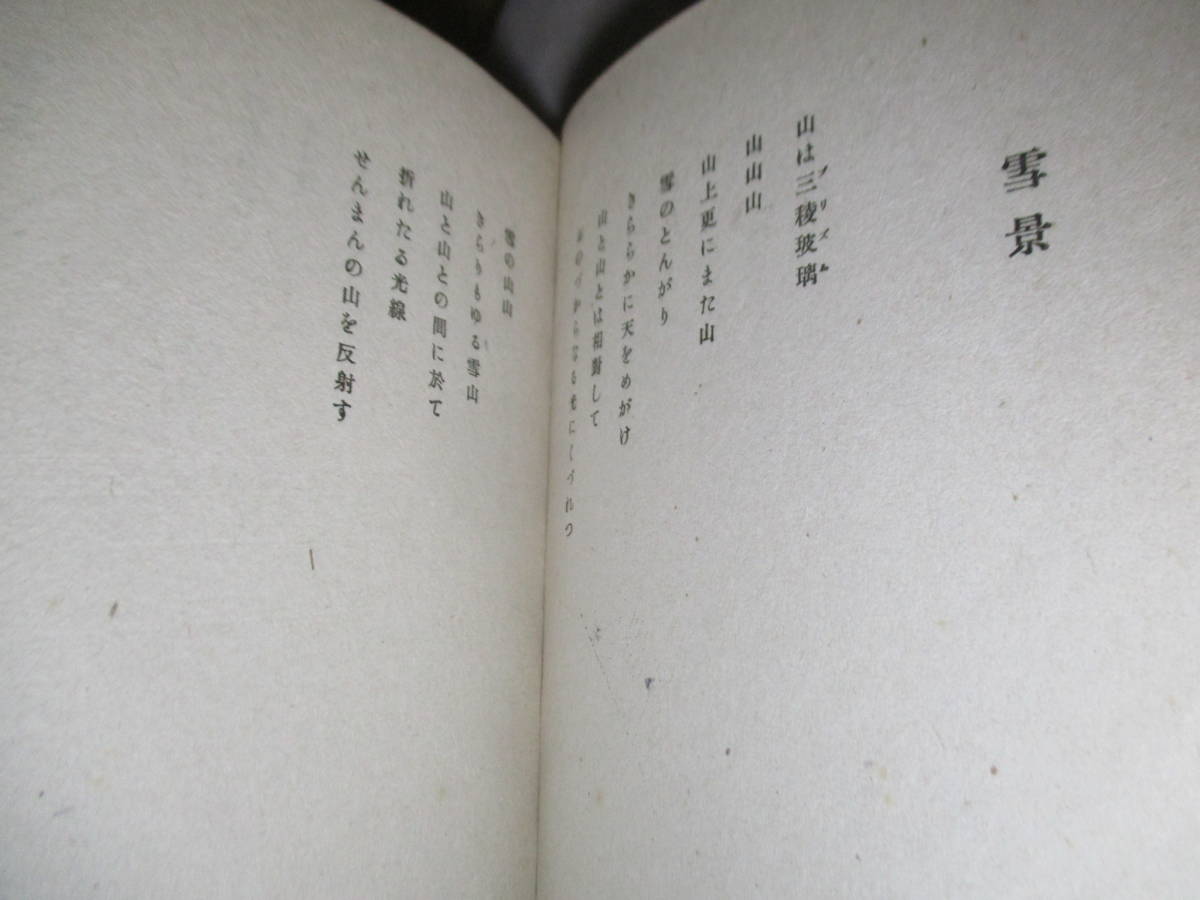 雪景
山は三稜玻璃
プリズム
山山山
山上更にまた山
雪のとんがり
きららかに天をめがけ
山と山とは相對して
おのづからなる光にくづれつ
雪の山山
きらりもゆる雪山
山と山との間に於て
折れたる光線
せんまんの山を反射す